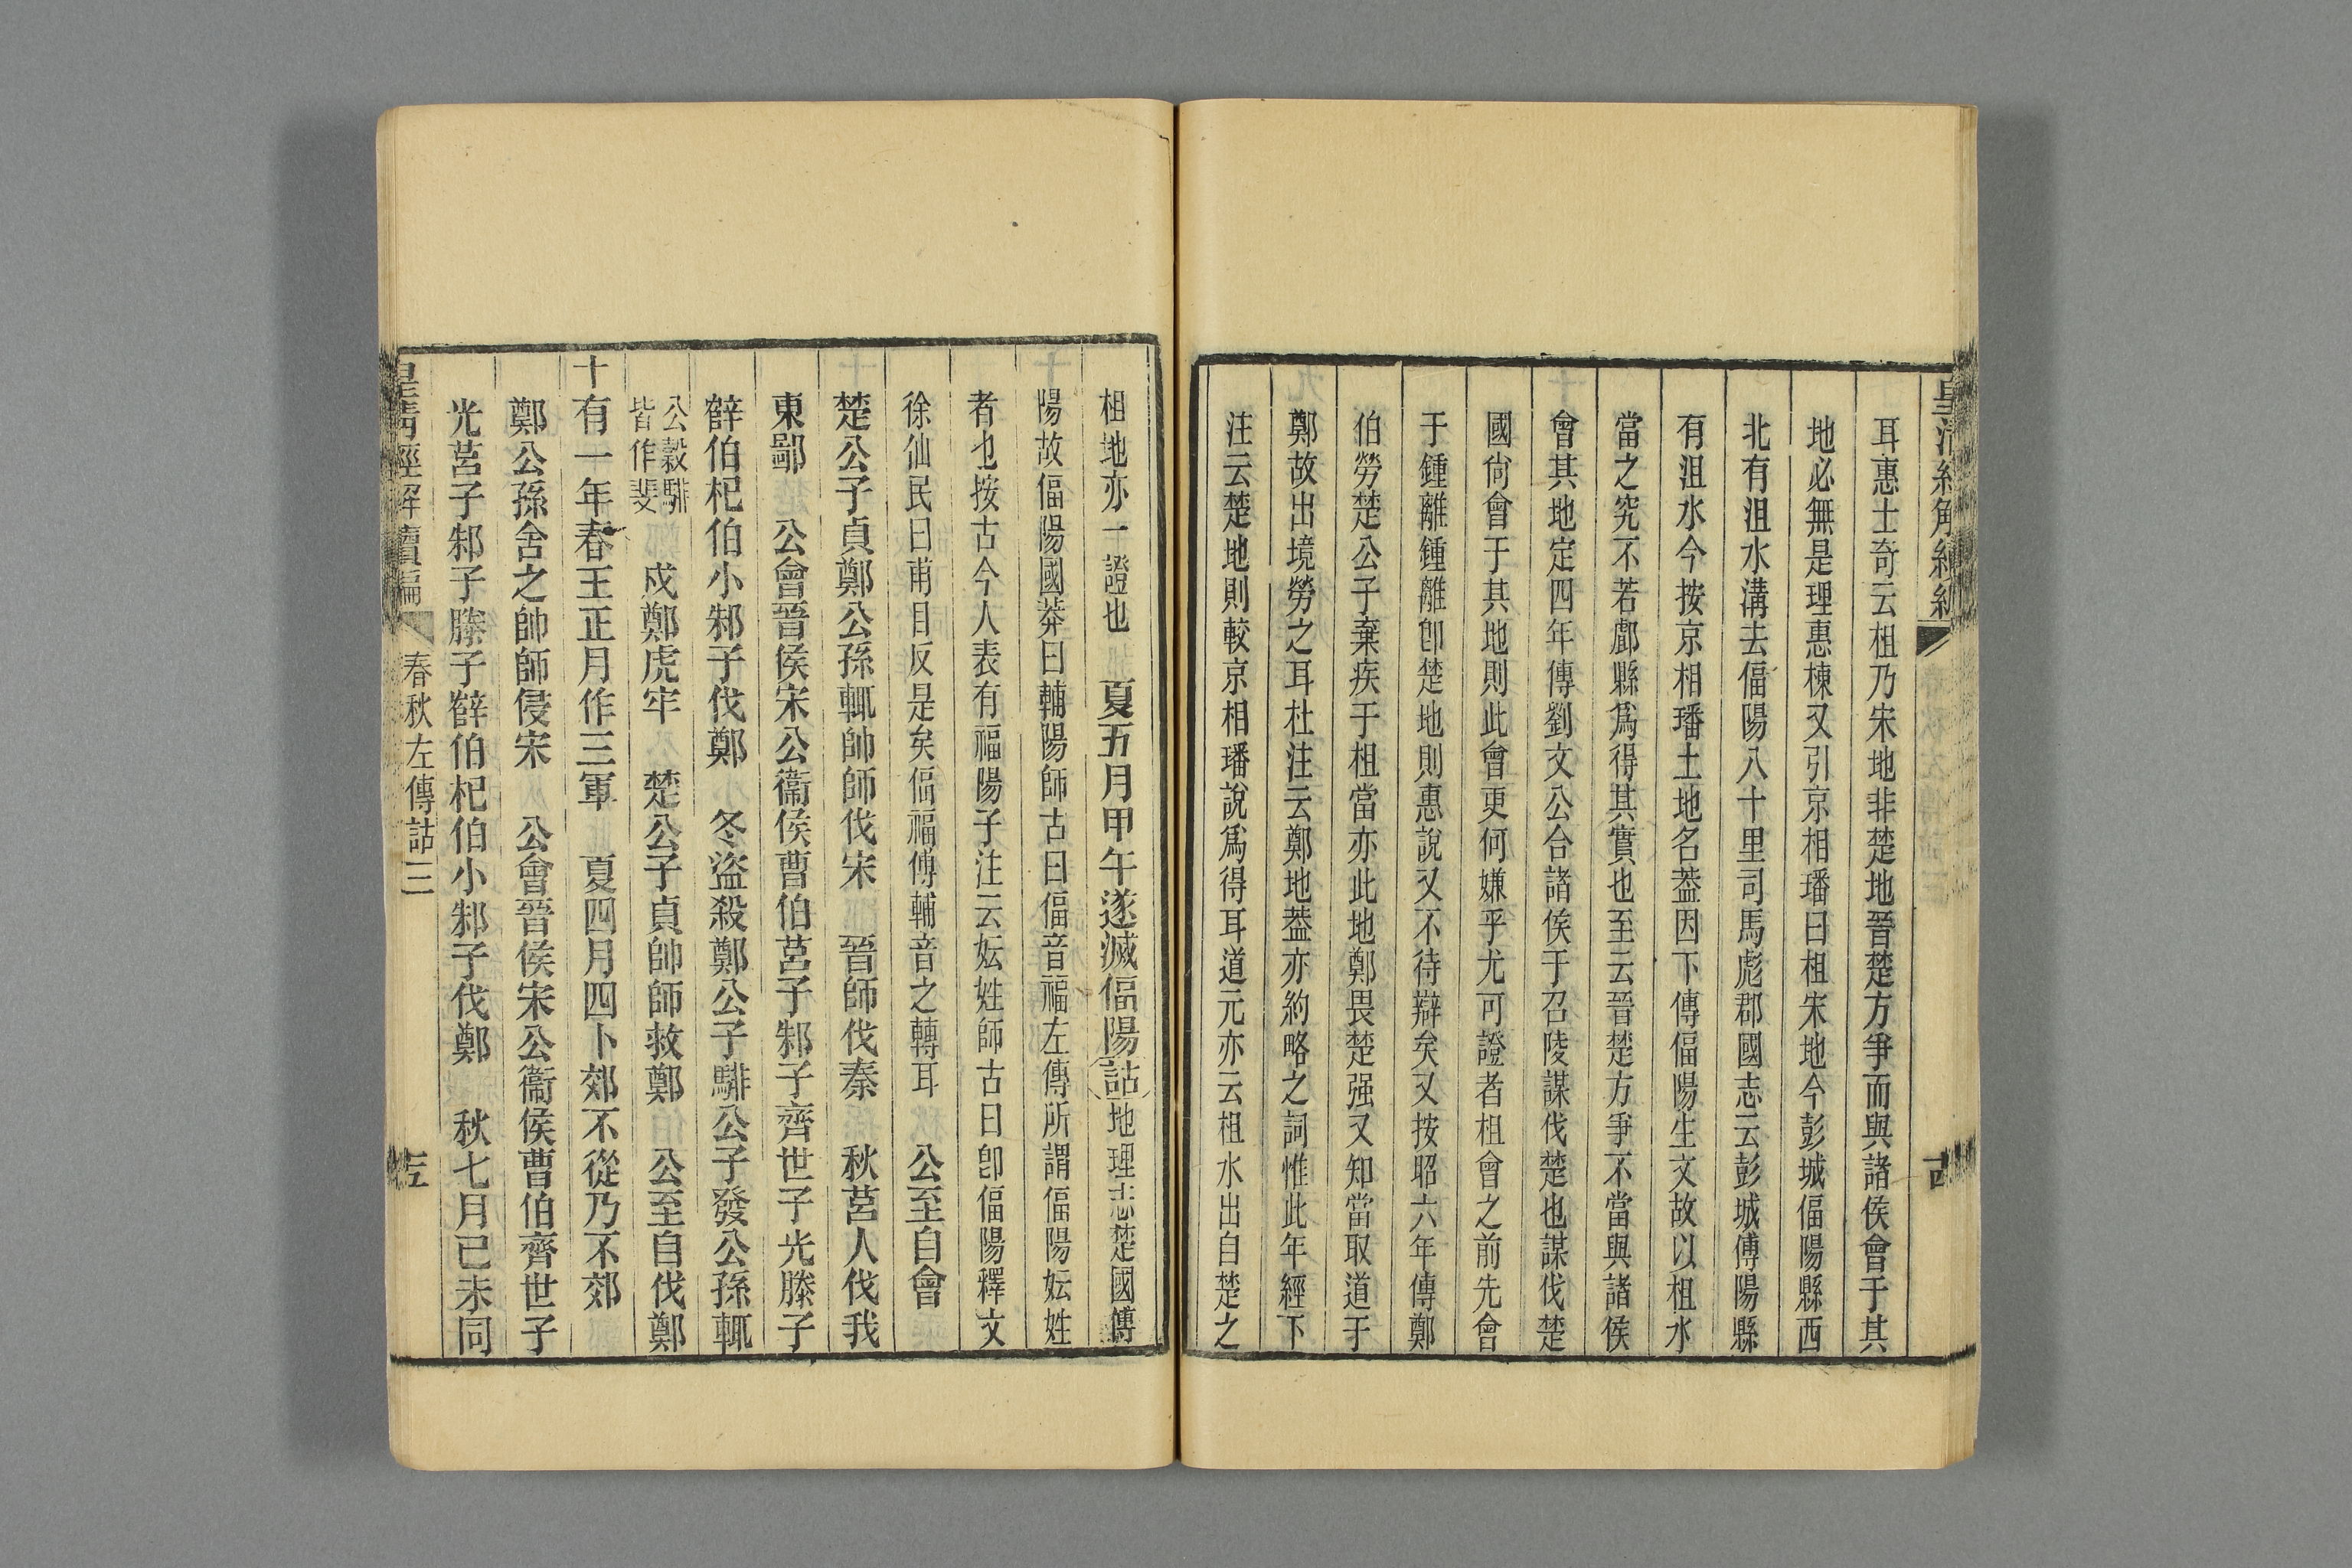 皇清經解續編
耳惠士奇云柤乃宋地非楚地晉楚方爭而與諸侯會于其
地必無是理惠棟又引京相璠曰柤宋地今彭城偪陽縣西
北有沮水溝去偪陽八十里司馬彪郡國志云彭城傅陽縣
有沮水今按京相璠土地名葢因下傳偪陽生文故以柤水
當之究不若酇縣爲得其實也至云晉楚方爭不當與諸侯
會其地定四年傳劉文公合諸侯于召陵謀伐楚也謀伐楚
國尙會于其地則此會更何嫌乎尤可證者柤會之前先會
于鍾離鍾離卽楚地則惠說又不待辯矣又按昭六年傳鄭
伯勞楚公子棄疾于柤當亦此地鄭畏楚强又知當取道于
鄭故出境勞之耳杜注云鄭地葢亦約略之詞惟此年經下
注云楚地則較京相璠說爲得耳道元亦云柤水出自楚之
柤地亦一證也 夏五月甲午遂滅偪陽詁地理志楚國傅
陽故偪陽國莽曰輔陽師古曰偪音福左傳所謂偪陽妘姓
者也按古今人表有福陽子注云妘姓師古曰卽偪陽釋文
徐仙民曰甫目反是矣偪福傅輔音之轉耳 公至自會
楚公子貞鄭公孫輒帥師伐宋 晉師伐秦 秋莒人伐我
東鄙 公會晉侯宋公衞侯曹伯莒子邾子齊世子光滕子
薛伯杞伯小邾子伐鄭 冬盜殺鄭公子騑公子發公孫輒
公穀騑
皆作斐
戍鄭虎牢 楚公子貞帥師救鄭 公至自伐鄭
十有一年春王正月作三軍 夏四月四卜郊不從乃不郊
鄭公孫舍之帥師侵宋 公會晉侯宋公衞侯曹伯齊世子
光莒子邾子滕子薛伯杞伯小邾子伐鄭 秋七月已未同
皇清經解續編 春秋左傳詁三